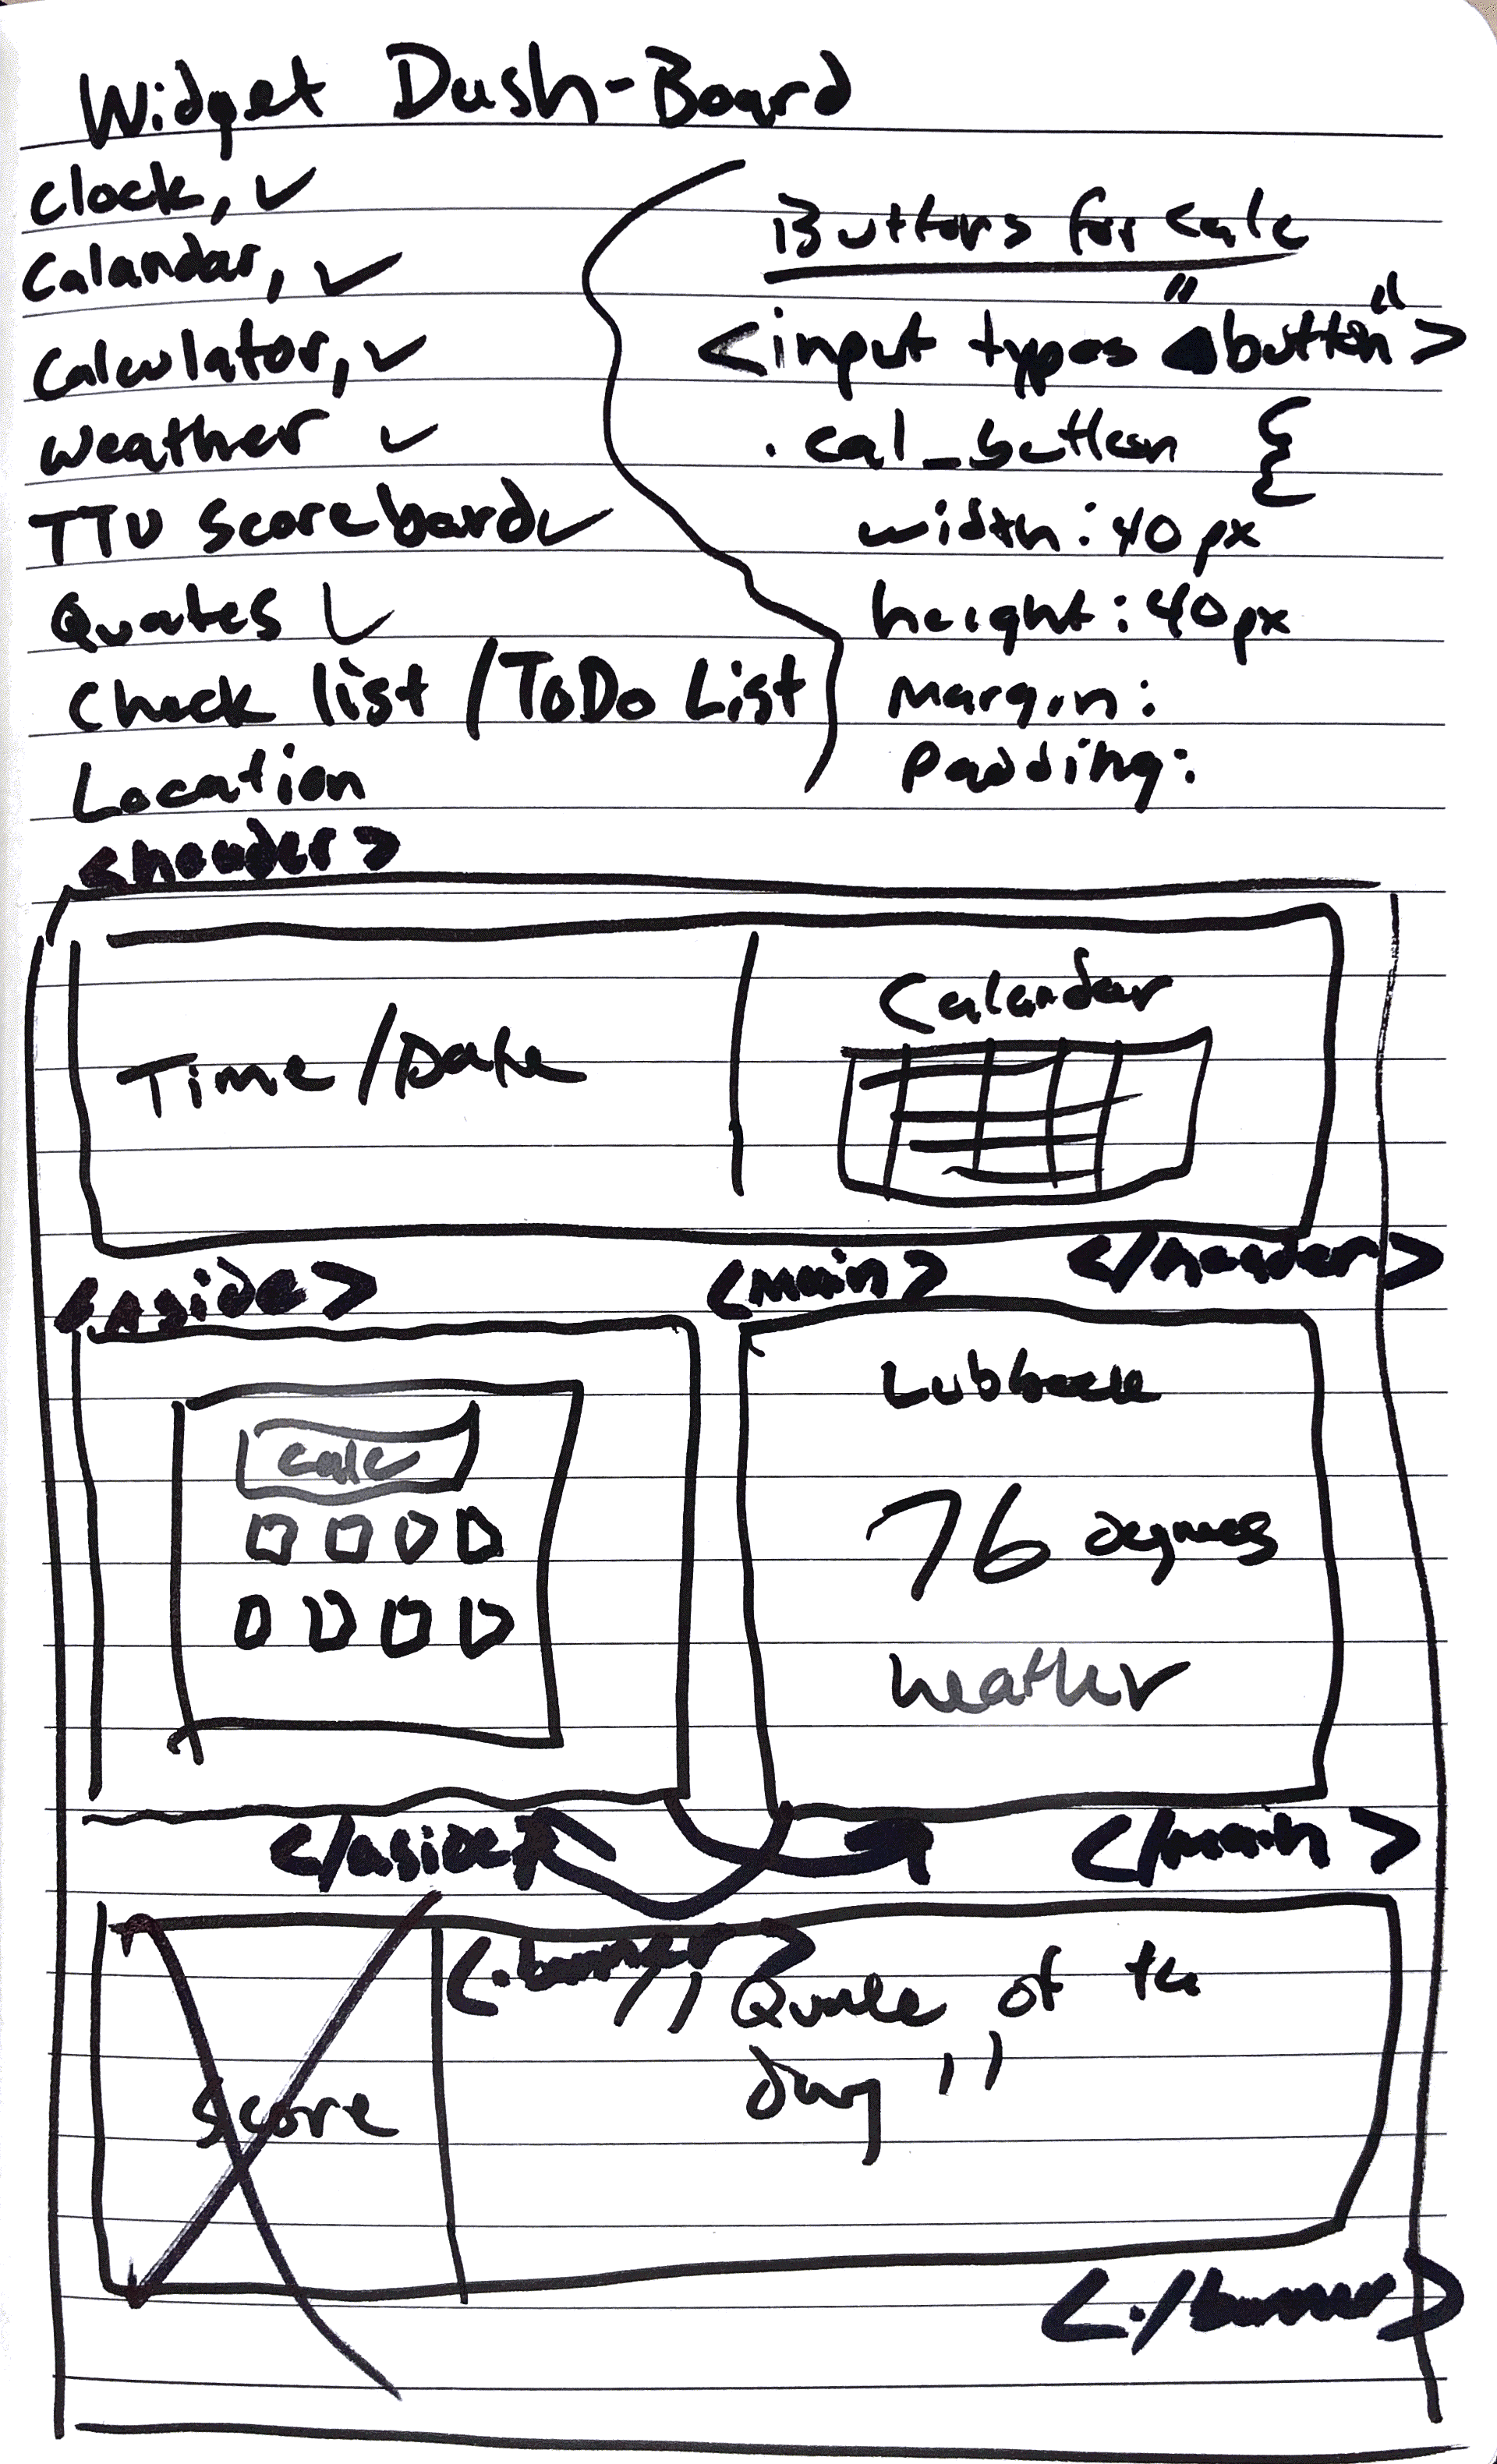 Widget Dash-Board
Clock, ✓
Calandar, ✓
Calculator, ✓
Weather ✓
TTU scoreboard ✓
Quotes ✓
Check list / ToDo List
Location
Buttons for calc
<input types "button">
.cal_button {
width: 40px
height: 40px
Margin:
Padding:
<header>
Time/Date
Calandar
</header>
<Aside>
<main>
calc
Lubbock
76 degrees
weather
</aside>
</main>
score
<.banner>
"Quote of the
day"
<./banner>